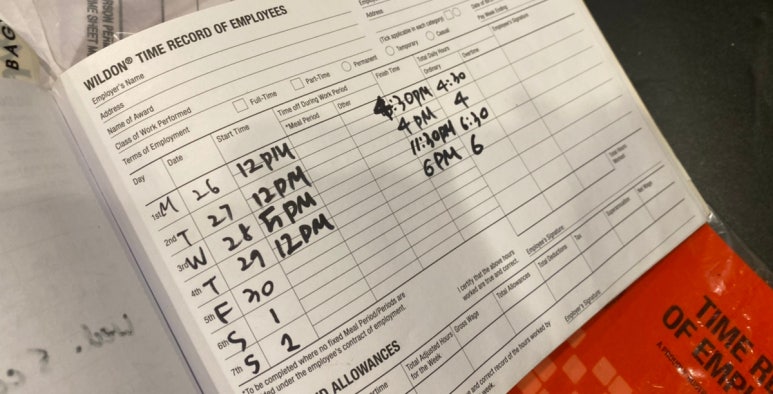 BAG
WILDON® TIME RECORD OF EMPLOYEES
Employer's Name
Address
Name of Award
Class of Work Performed
Terms of Employment
Full-Time
Part-Time
Permanent
Address
(Tick applicable in each category)
Temporary
Casual
Pay Week Ending
Employee's Signature
Day
Date
Start Time
Time off During Work Period
*Meal Period
Other
Finish Time
Total Daily Hours
Ordinary
Overtime
1st M 26 12PM 4:30PM 4:30
2nd T 27 12PM 4PM 4
3rd W 28 5PM 11:30PM 6:30
4th T 29 12PM 6PM 6
5th F 30
6th S 1
7th S 2
Total Hours Worked
*To be completed where no fixed Meal Period/Periods are
under the employee's contract of employment.
I certify that the above hours
worked are true and correct.
Employee's Signature
ALLOWANCES
Total Adjusted Hours
for the Week
Gross Wage
Total Allowances
Total Deductions
Tax
Superannuation
Net Wage
and correct record of the hours worked by
week.
Employer's Signature
TIME
OF